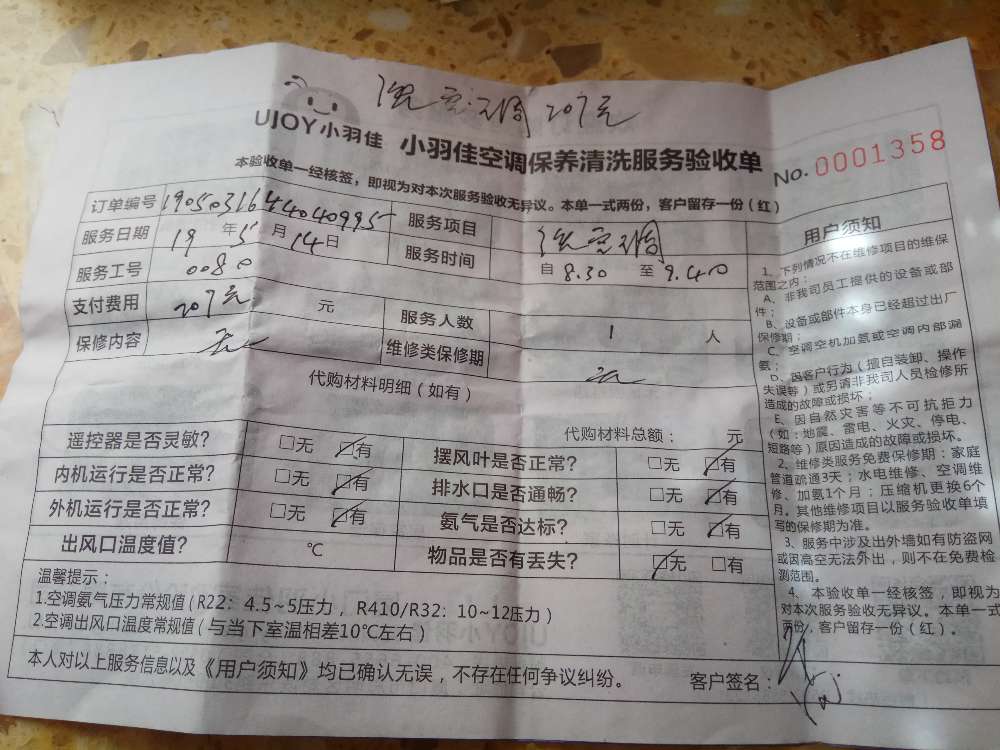 洗空调 207元
UJOY小羽佳 小羽佳空调保养清洗服务验收单
No. 0001358
本验收单一经核签，即视为对本次服务验收无异议。本单一式两份，客户留存一份（红）
订单编号 服务项目 洗空调
服务日期 19 年 5 月 14 日 服务时间 自 8.30 至 9.40
服务工号 0080
支付费用 207元 元 服务人数 1 人
保修内容 无 维修类保修期 无
代购材料明细（如有）
代购材料总额： 元
遥控器是否灵敏？ □无 ☑有 摆风叶是否正常？ □无 ☑有
内机运行是否正常？ □无 ☑有 排水口是否通畅？ □无 ☑有
外机运行是否正常？ □无 ☑有 氨气是否达标？ □无 ☑有
出风口温度值？ ℃ 物品是否有丢失？ ☑无 □有
温馨提示：
1.空调氨气压力常规值（R22：4.5~5压力，R410/R32：10~12压力）
2.空调出风口温度常规值（与当下室温相差10℃左右）
本人对以上服务信息以及《用户须知》均已确认无误，不存在任何争议纠纷。 客户签名：
用户须知
1、下列情况不在维修项目的维保
范围之内：
A、非我司员工提供的设备或部
件；
B、设备或部件本身已经超过出厂
保修期；
C、空调空机加氨或空调内部漏
氨；
D、因客户行为（擅自装卸、操作
失误等）或另请非我司人员检修所
造成的故障或损坏；
E、因自然灾害等不可抗拒力
（如：地震、雷电、火灾、停电、
短路等）原因造成的故障或损坏。
2、维修类服务免费保修期：家庭
管道疏通3天；水电维修、空调维
修、加氨1个月；压缩机更换6个
月。其他维修项目以服务验收单填
写的保修期为准。
3、服务中涉及出外墙如有防盗网
或因高空无法外出，则不在免费检
测范围。
4、本验收单一经核签，即视为
对本次服务验收无异议。本单一式
两份，客户留存一份（红）。